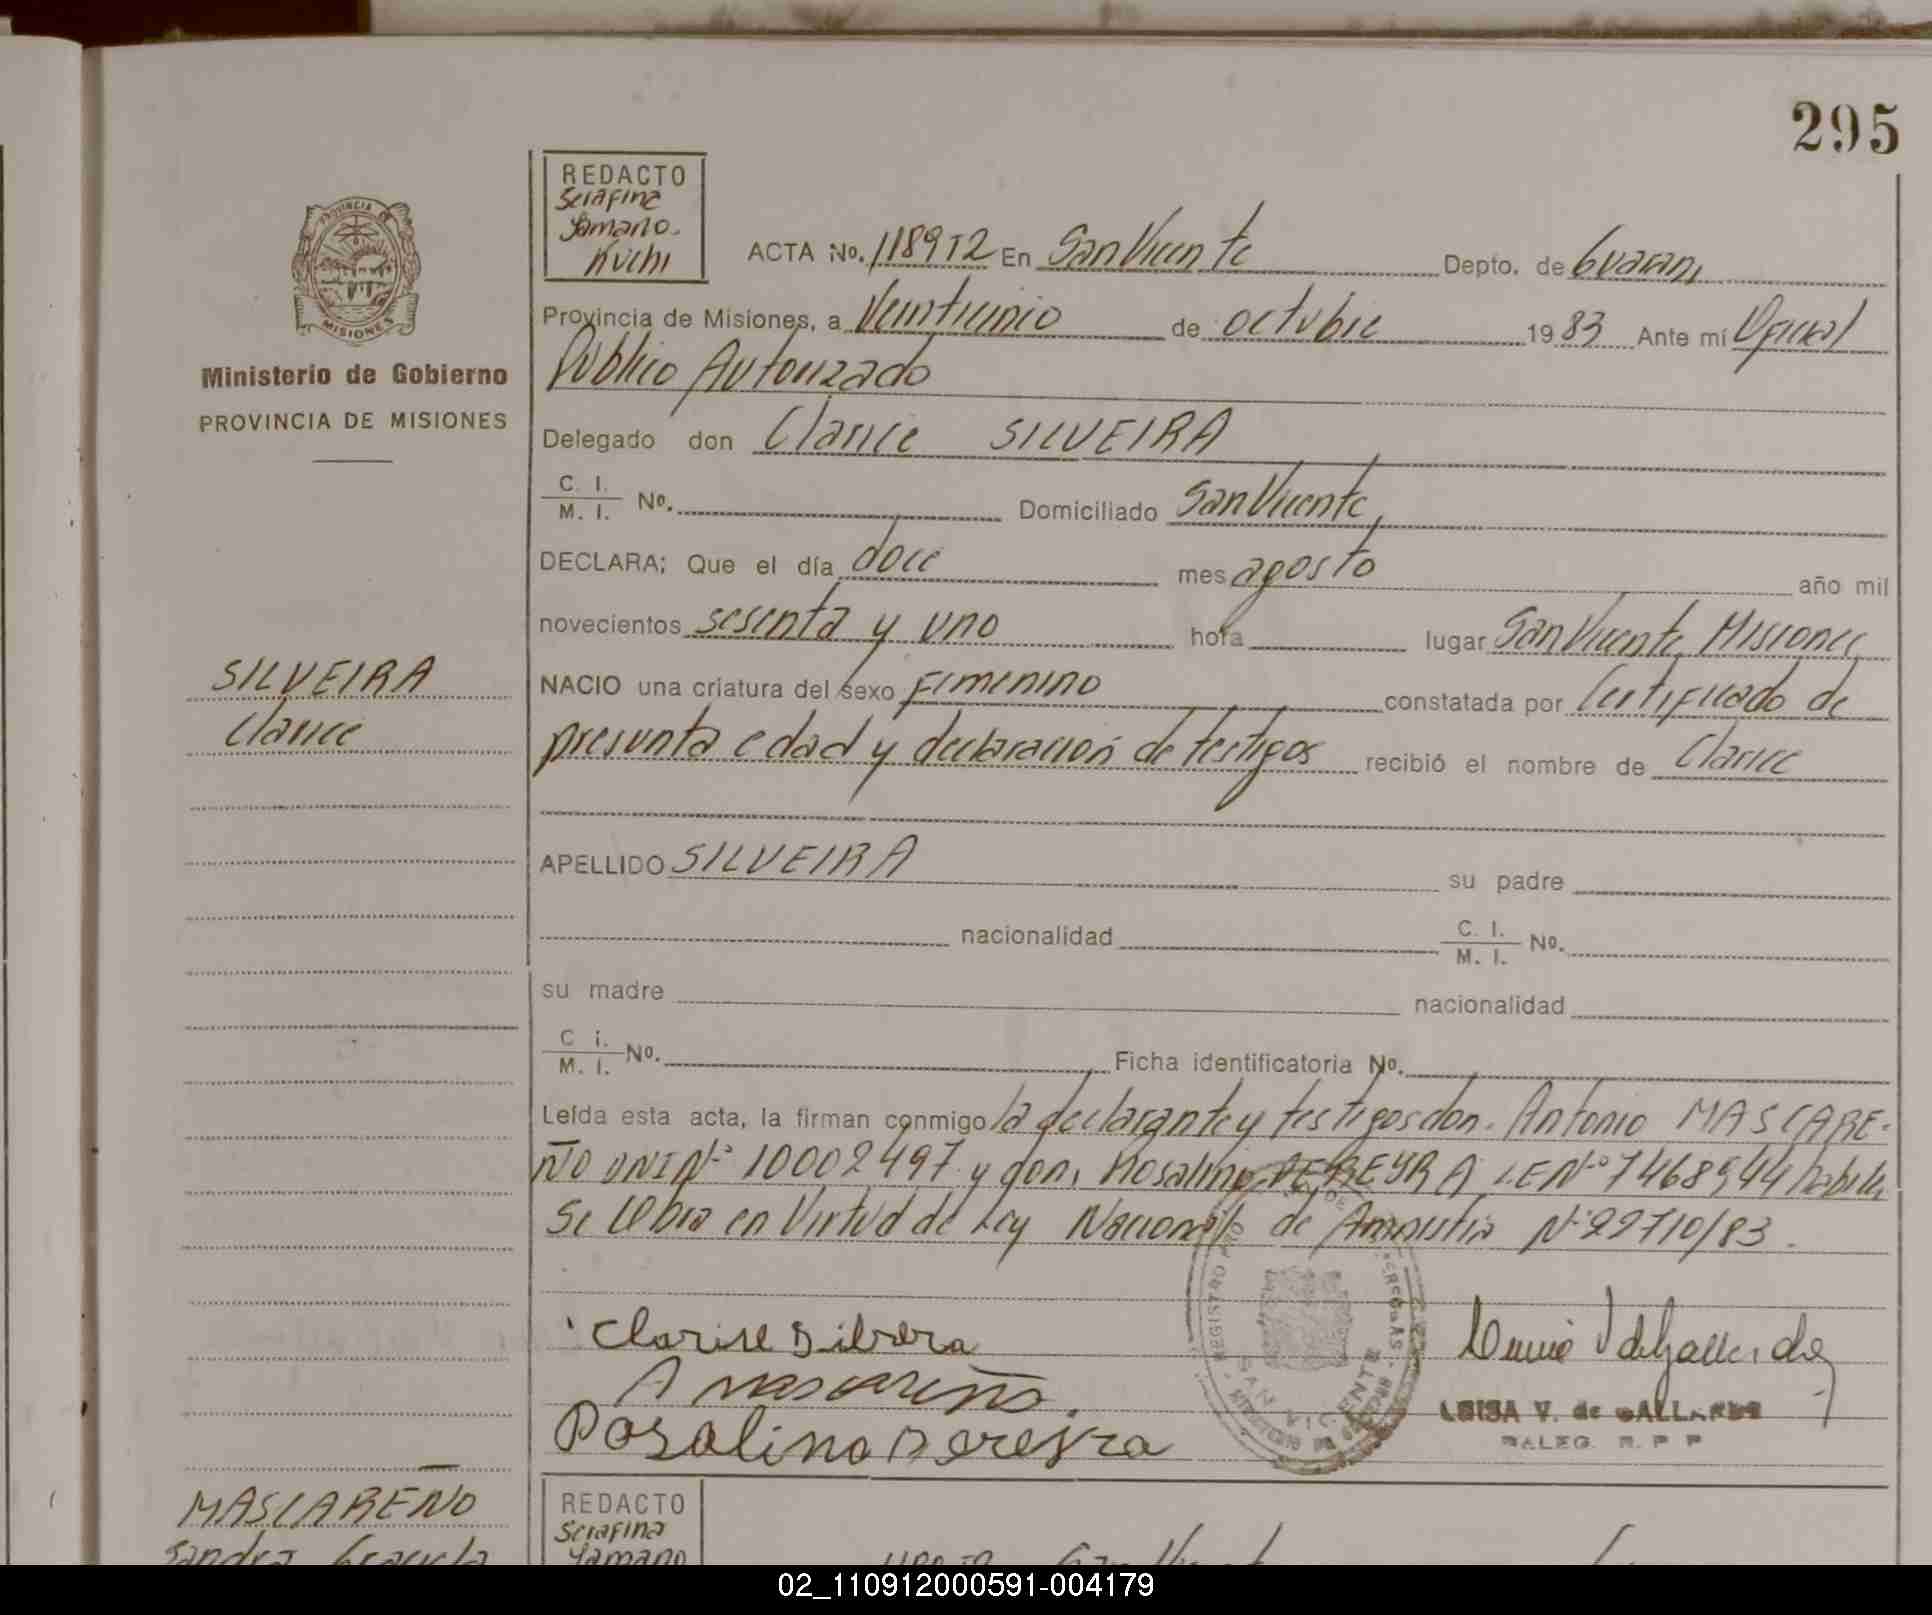 295
REDACTO
Serafina
Yamano
Kuchi
PROVINCIA DE
MISIONES
Ministerio de Gobierno
PROVINCIA DE MISIONES
ACTA No. 1189T2 En San Vicente Depto. de Guarani
Provincia de Misiones, a Veinticinco de octubre 1983 Ante mí Oficial
Publico Autorizado
Delegado don Clarice SILVEIRA
C. I. / M. I. No. Domiciliado San Vicente
DECLARA; Que el día doce mes agosto año mil
novecientos sesenta y uno hora lugar San Vicente, Misiones
SILVEIRA
Clarice
NACIO una criatura del sexo Femenino constatada por Certificado de
presunta edad y declaración de testigos recibió el nombre de Clarice
APELLIDO SILVEIRA su padre
nacionalidad C. I. / M. I. No.
su madre nacionalidad
C i. / M. I. No. Ficha identificatoria No.
Leída esta acta, la firman conmigo la declarante y testigos don. Antonio MASCARE-
ÑO DNI Nº 10002497 y don, Rosalino PEREYRA, LE Nº 7468944 habiles
Se labra en Virtud de Ley Nacional de Amnistia Nº 22710/83.
Clarise Silvera
A mascareño.
Rosalino Pereyra
SAN VICENTE
LUISA V. de GALLARDO
DALEG. R. P. P.
MASCAREÑO
Sandra Graciela
REDACTO
Serafina
Yamano
San Vicente
02_110912000591-004179